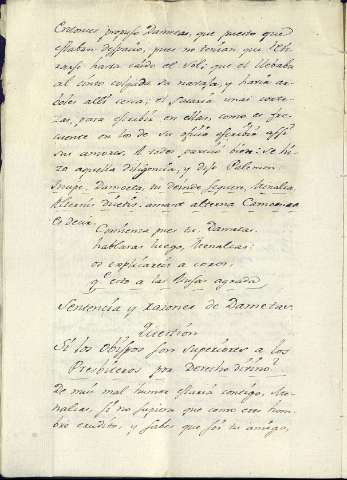 Entonces propuso Dametas, que puesto que
estaban despacio, pues no tenian que
hasta caido el sol; que el llebaba
al cinto colgada su navaja, y havia ar-
boles alli cerca; el sacaria unas corte-
zas, para escribir en ellas, como es fre-
cuente en los de su oficio escribir assi
sus amores. A todos pareció bien: se hi-
zo aquella diligencia, y dijo Palemon:
Incipe, Dameta, tu deinde sequere, Menalca,
Alternis dicetis, amant alterna Camoenae
Es decir.
Comienza pues tu, Dametas,
hablaras luego, Menalcas:
os explicareis a coros,
q.e esto a las Musas agrada
Sentencia y razones de Dametas.
Question
Si los Obispos son superiores a los
Presbiteros por Derecho divino?
De mui mal humor estaria contigo, Me-
nalcas, si no supiera que como eres hom-
bre erudito, y sabes que soy tu amigo,